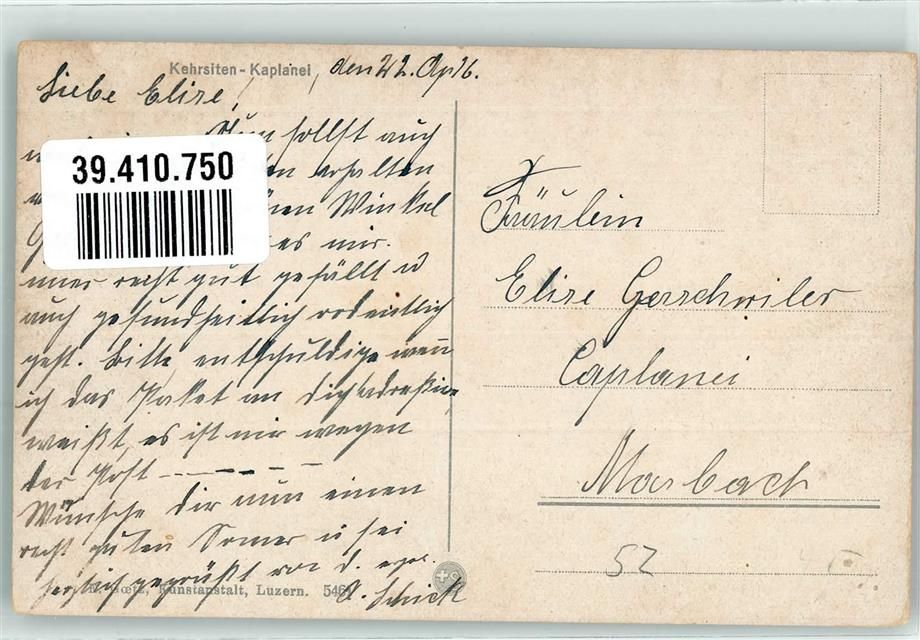 Kehrsiten - Kaplanei, den 22. Ap 16.
Liebe Elise!
Nun sollst auch
erhalten
Winkel
es mir.
immer recht gut gefällt u
auch gesundheitlich ordentlich
geht. Bitte entschuldige wenn
ich das Paket an Dich
weißt, es ist nur wegen
der Post – – – – –
Wünsche Dir nun einen
recht guten Somer u sei
herzlich gegrüßt von d.
A. Schick
Goetz, Kunstanstalt, Luzern. 546
39.410.750
Fräulein
Elise Gerschwiler
Caplanei
Marbach
52